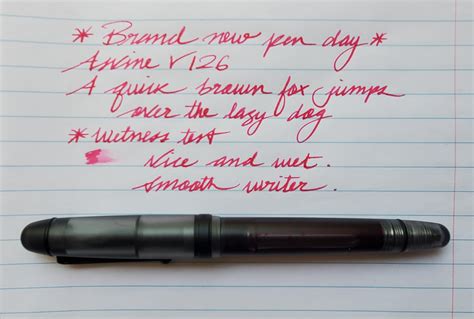 * Brand new pen day *
Asvine V126
A quick brown fox jumps
over the lazy dog
* Wetness test
Nice and wet.
Smooth writer.